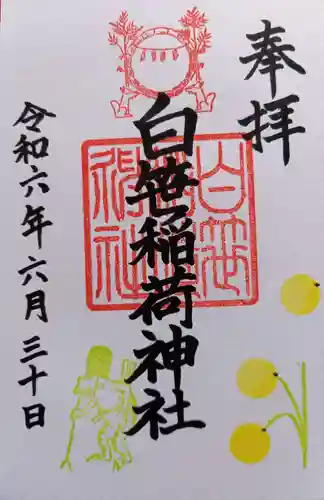 奉拝
白笹稲荷神社
令和六年六月三十日